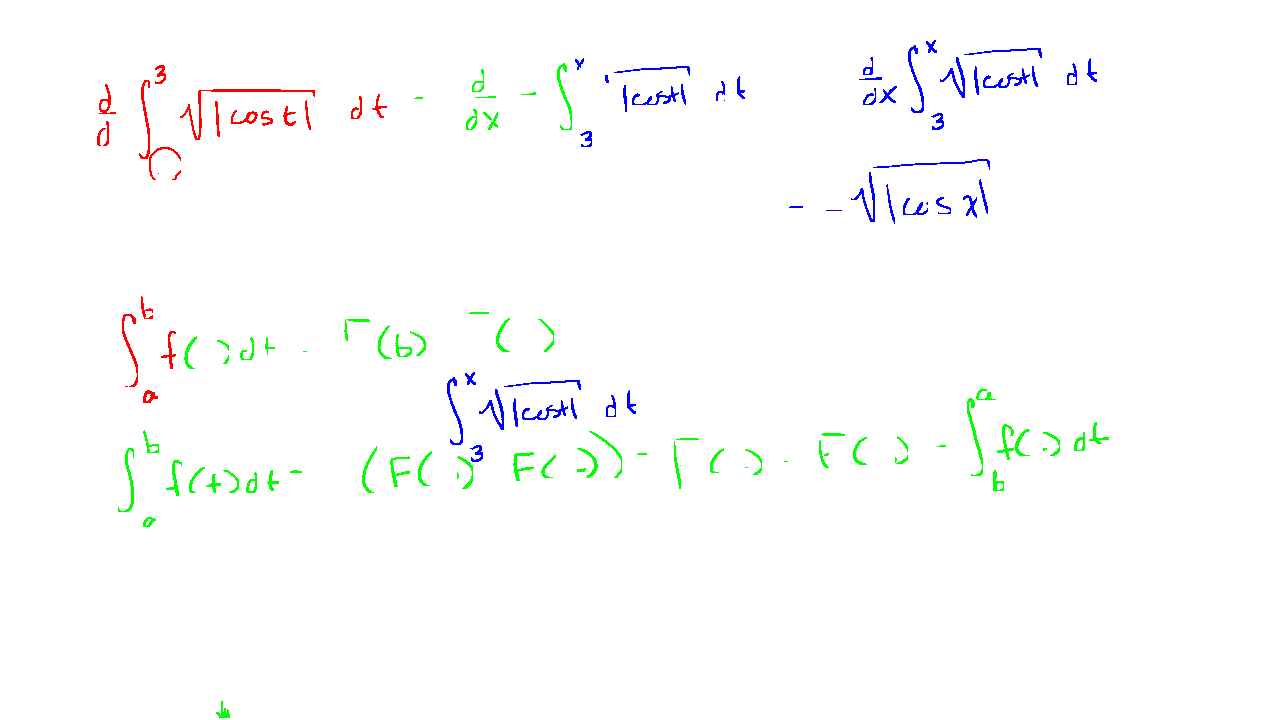 d/d ∫ 3 √|cos t| dt - d/dx - ∫_3^x √|cost| dt d/dx ∫_3^x √|cost| dt
- - √|cos x|
∫_a^b f( ) dt - F(b) F( )
∫_3^x √|cost| dt
∫_a^b f(t) dt - (F( ) F( )) - F( ) - F( ) - ∫_b^a f( ) dt